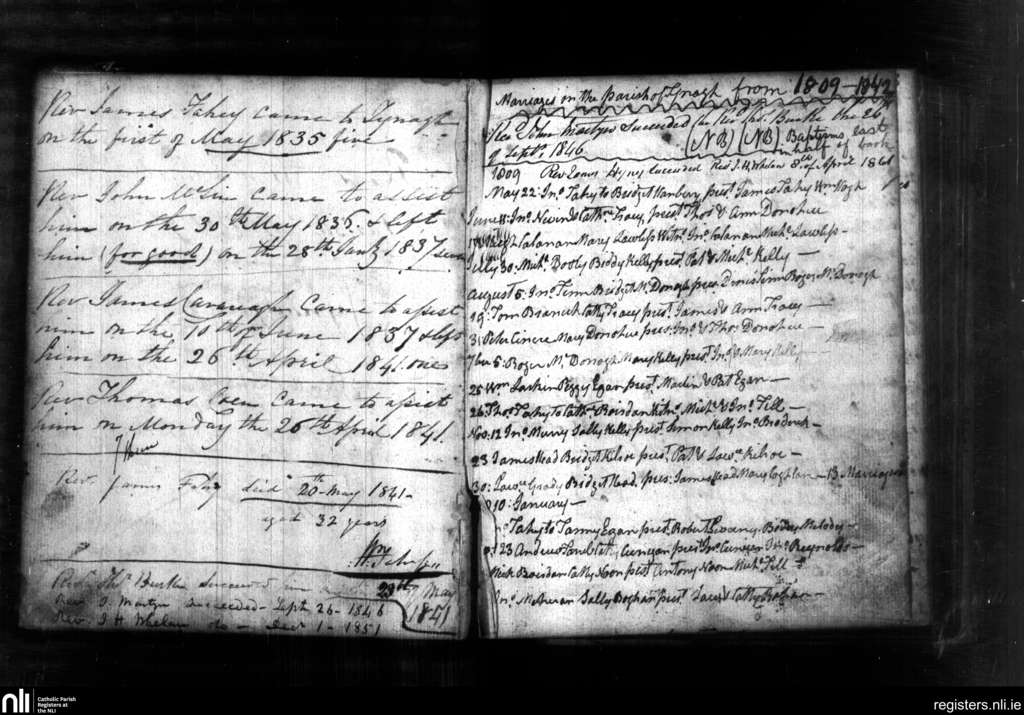 Rev James Fahey Came to Tynagh
on the first of May 1835 five
Rev John McGin Came to assist
him on the 30th May 1835 & left
him (for good) on the 28th Jany 1837
Rev James Cavanagh Came to asist
him on the 10th of June 1837 & left
him on the 26th April 1841.
Rev Thomas Coen Came to asist
him on Monday the 26th April 1841.
Rev. James Fahy died 20th May 1841-
aged 32 years
Revd Thos Burke Succeeded him 29th May
1841
Rev J. Martyn succeeded - Sept 26 - 1846
Rev J H Whelan do - Decr 1 - 1851
Marriages in the parish of Tynagh from 1809-1842
Revd John Martyn Succeeded the Rev Thos. Burke the 26th
of Septr. 1846 (NB) (NB) Baptisms last
in half of book
1809 Rev Succeeded Rev J. H. Whelan 8th of April 1861
May 22 Jno. Fahy to Bridget Hanbury prest James Fahy Wm
June Jno. Nevin & Cathe. Tracy prest. Thos & Ann Donohue
Calanan Mary Lawless Witns. Jno. Calanan Michl. Lawless -
July 30: Michl. Dooly Biddy Kelly prest. Pat & Michl. Kelly -
August 5: Jno. Finn Bridget McDonogh pres: Denis Finn Roger McDonogh
19: Tom Cathy Tracy prest. James & Ann Tracy -
31 Peter Mary Donohue pres: Jno. & Thos Donohue -
7ber 5: Roger McDonogh Mary Kelly prest. Jno. & Mary Kelly -
25 Wm Larkin Peggy Egan prest. Martin & Pat Egan -
26 Thos Fahy to Cathe. Roirdan Witns. Michl. & Jno. Fill -
Nov: 12 Jno. Murry Sally Kelly prest. Simon Kelly Jno. Broderick -
23 James Head Bridget Kihoe prest. Pat & Lawe. Kihoe -
30: Lawe. Grady Bridget Head. pres: James Head Mary Coghlan - 13 Marriages
1810: January -
Fahy to Fanny Egan prest. Robert Biddy Melody -
23 Andrew Cathy prest Jno. Reynolds -
Mick Roirdan Cathy Noon prest Antony Noon Michl. Fill
Jno. Sally prest. & Cathy
nli
Catholic Parish
Registers at
the NLI
registers.nli.ie